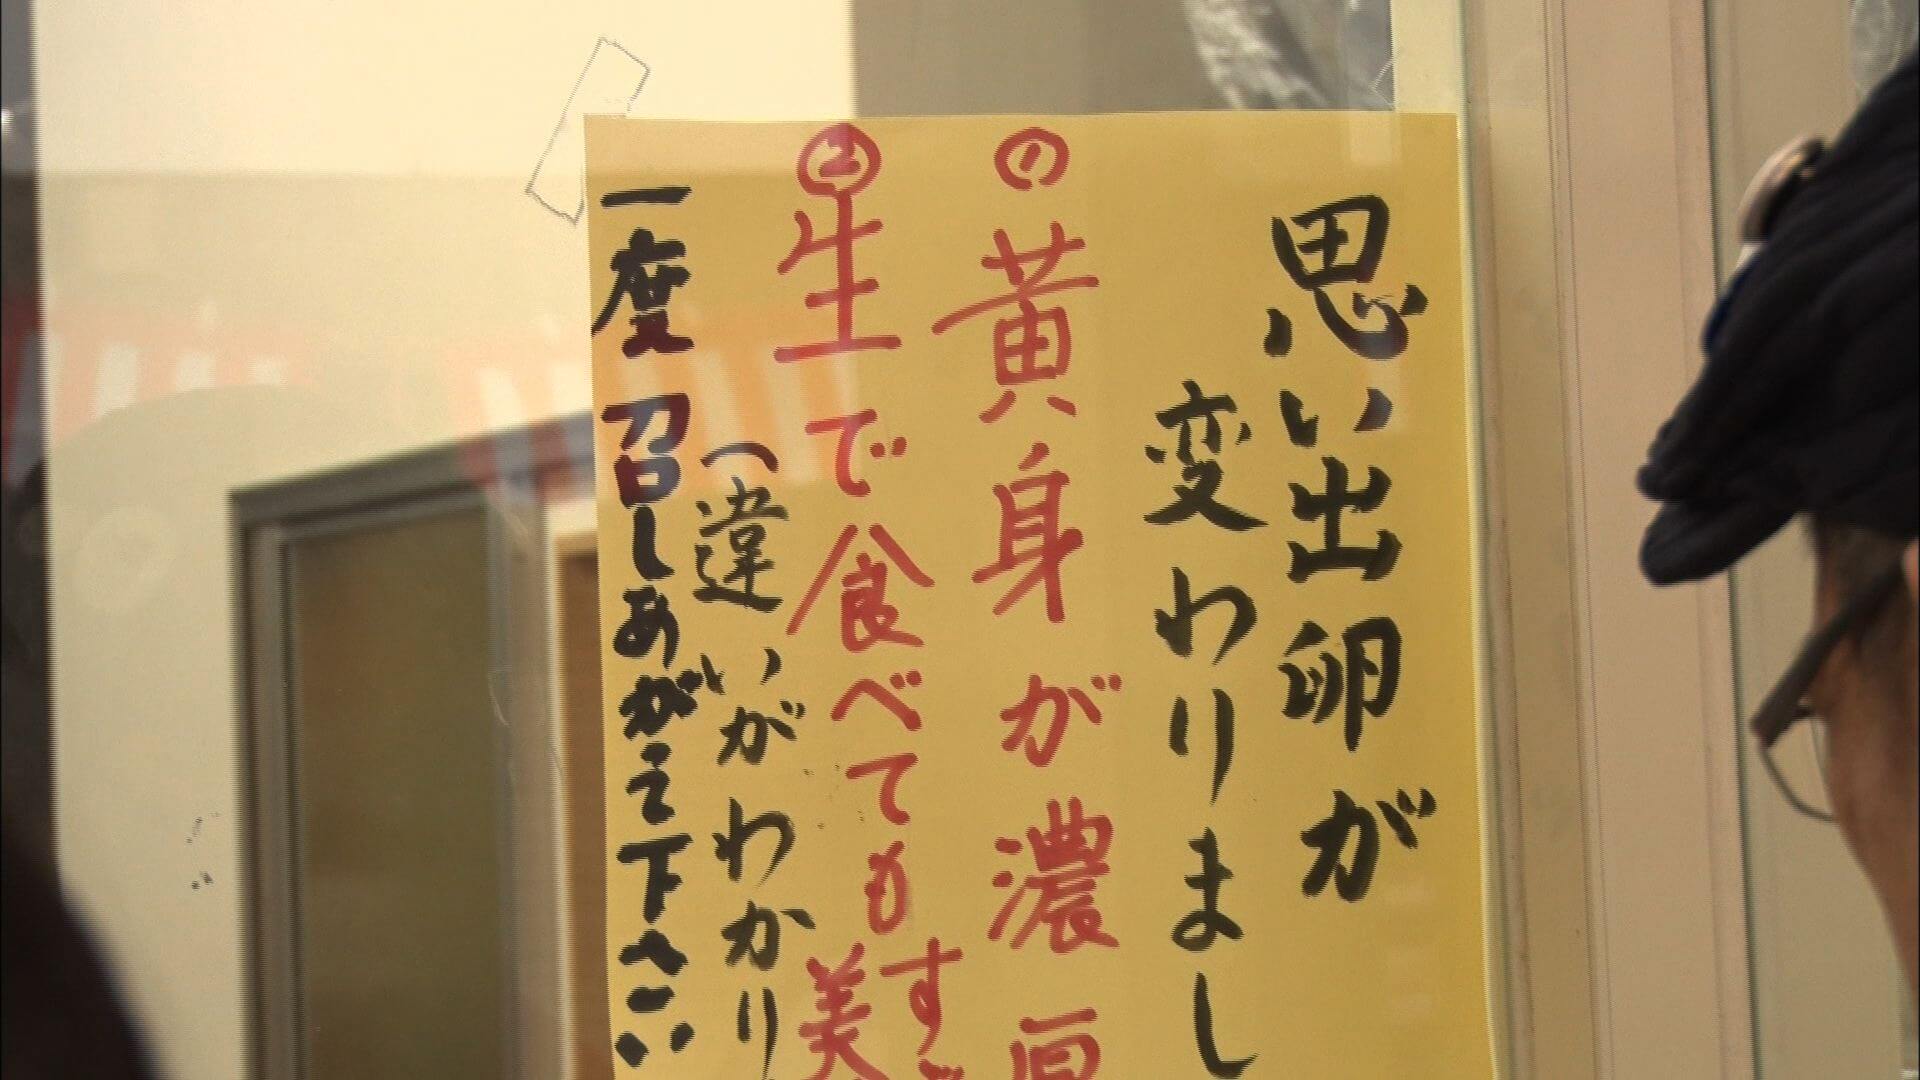 思い出卵が
変わりまし
① 黄身が濃厚
② 生で食べても
美
すで
(違いがわかり
一度召しあがって下さい